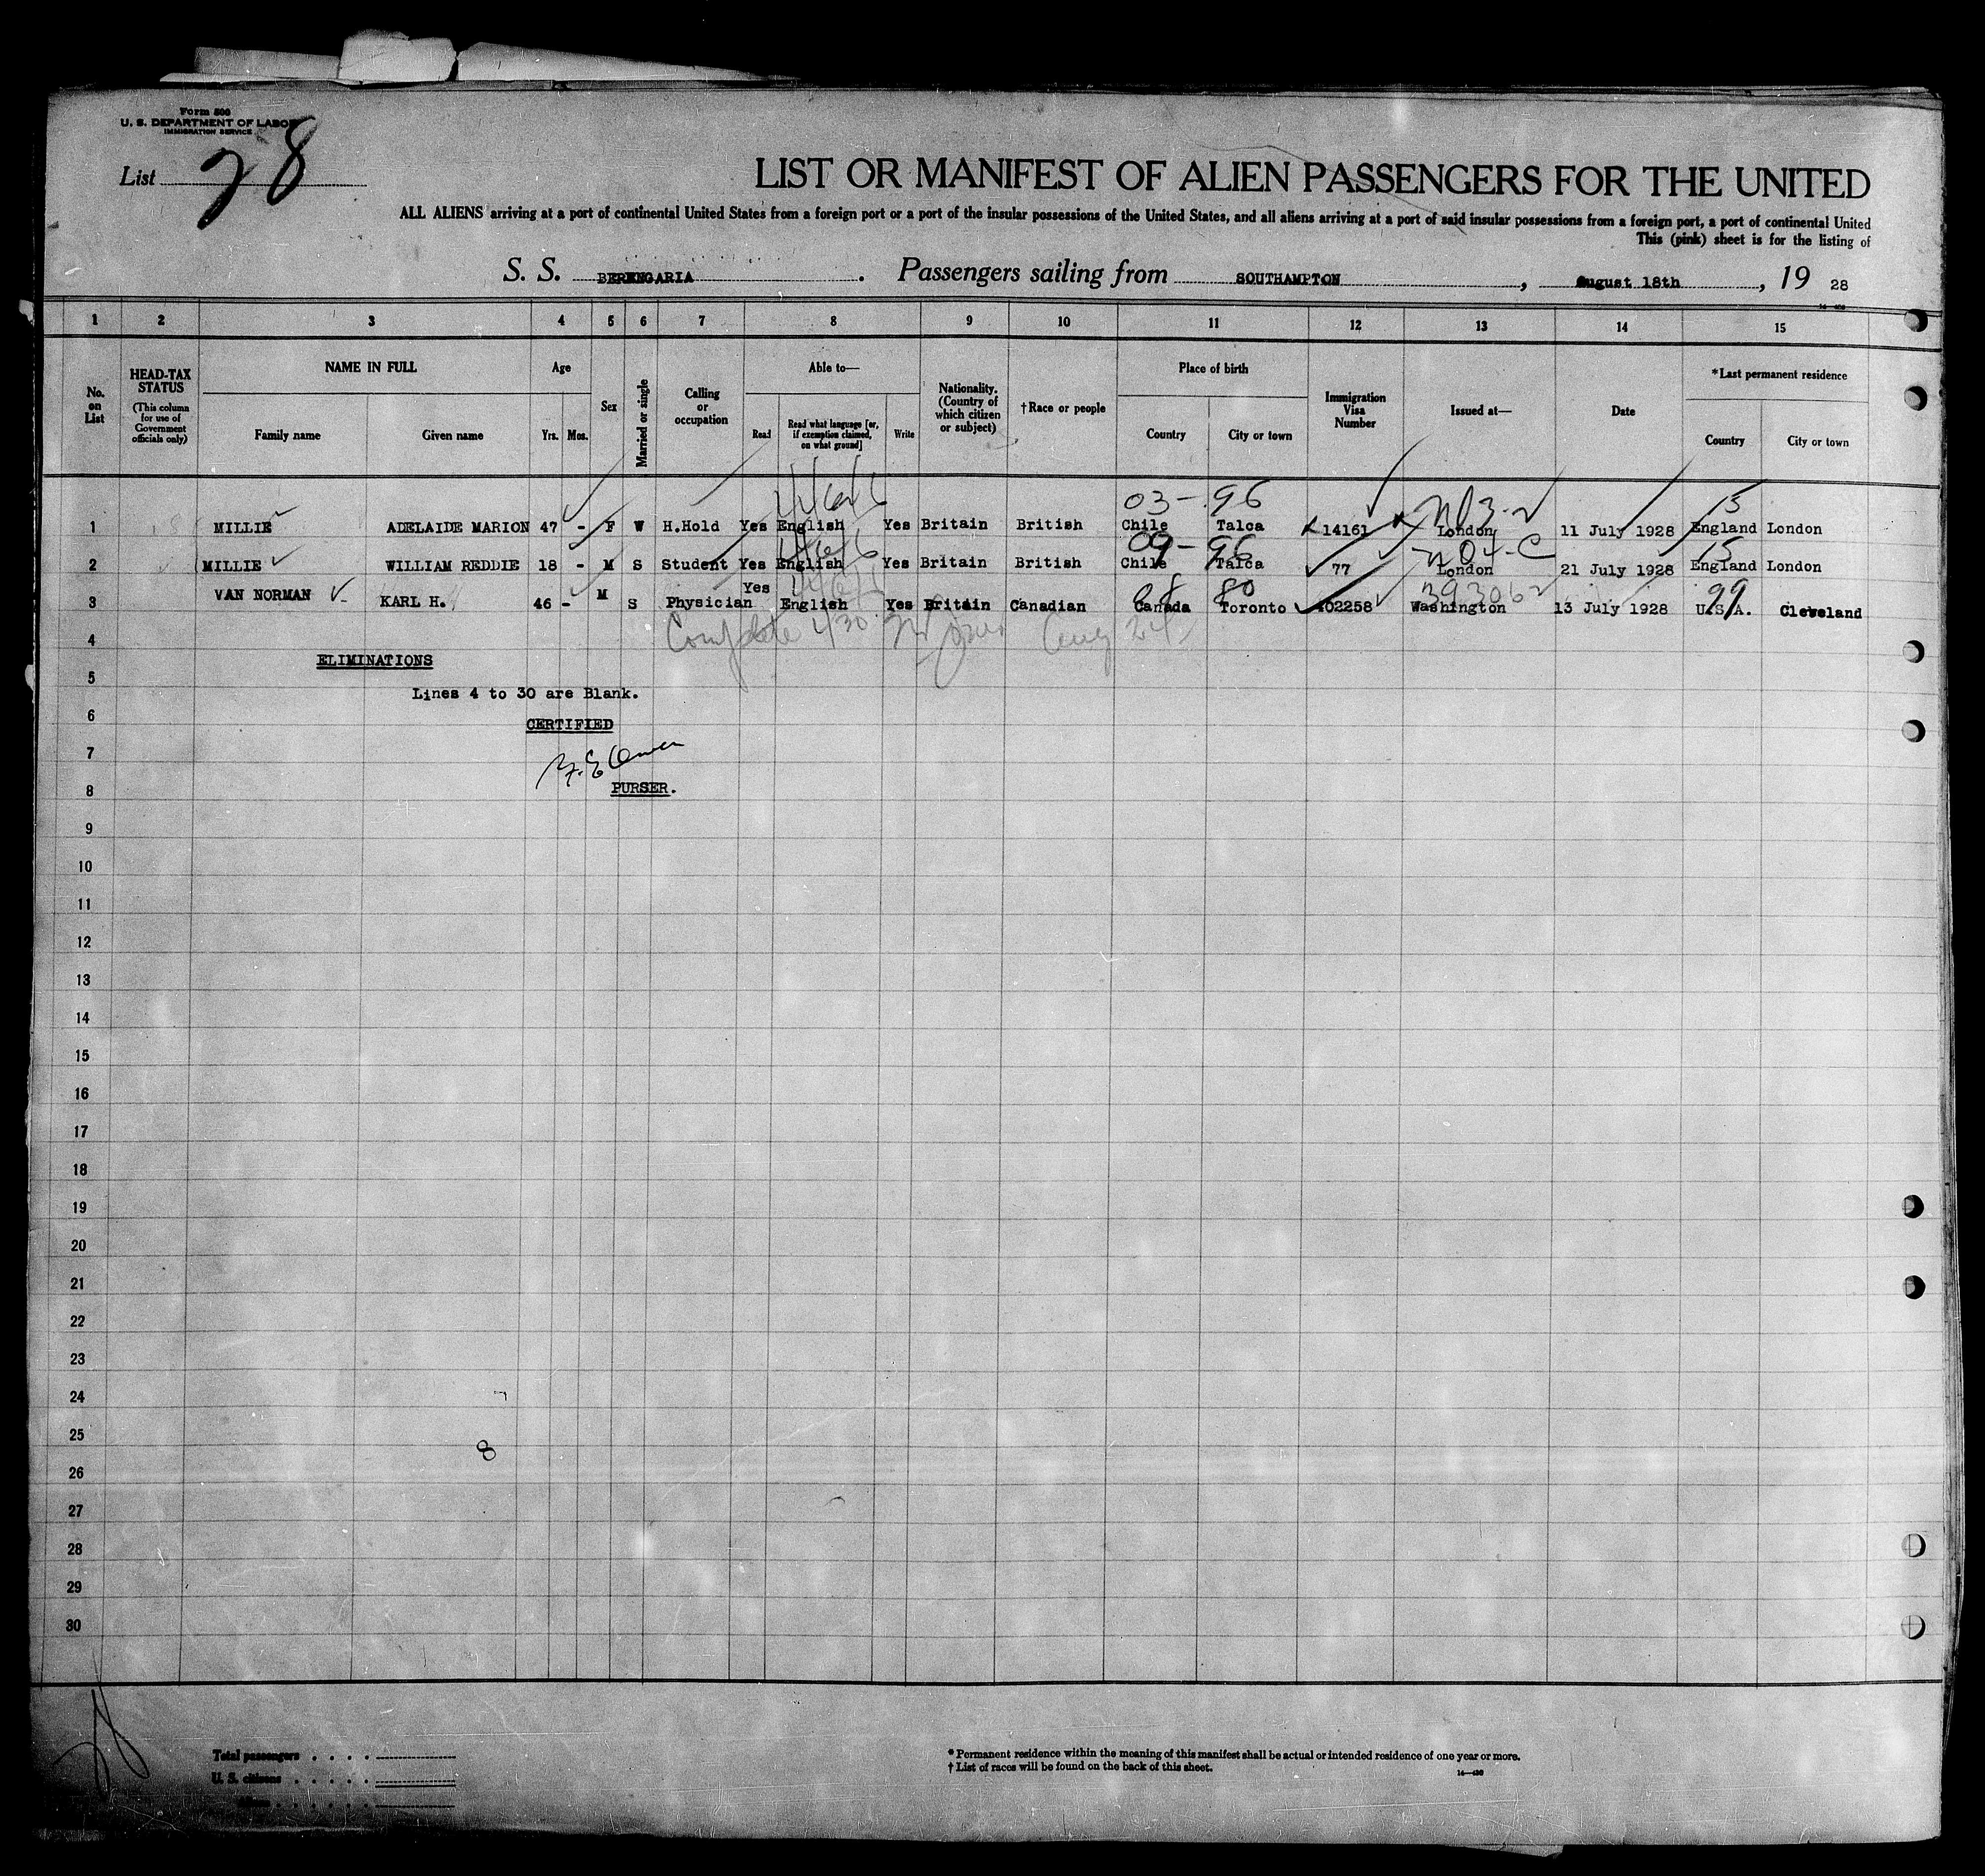 Form 500
U. S. DEPARTMENT OF LABOR
IMMIGRATION SERVICE
List 28
LIST OR MANIFEST OF ALIEN PASSENGERS FOR THE UNITED
ALL ALIENS arriving at a port of continental United States from a foreign port or a port of the insular possessions of the United States, and all aliens arriving at a port of said insular possessions from a foreign port, a port of continental United
This (pink) sheet is for the listing of
S. S. BERENGARIA. Passengers sailing from SOUTHAMPTON, August 18th, 19 28
1 2 3 4 5 6 7 8 9 10 11 12 13 14 15
No. on List
HEAD-TAX STATUS
(This column for use of Government officials only)
NAME IN FULL
Family name Given name
Age
Yrs. Mos.
Sex
Married or single
Calling or occupation
Able to—
Read
Read what language [or, if exemption claimed, on what ground]
Write
Nationality. (Country of which citizen or subject)
†Race or people
Place of birth
Country City or town
Immigration Visa Number
Issued at—
Date
*Last permanent residence
Country City or town
03- 96 15
1 MILLIE ADELAIDE MARION 47 - F W H.Hold Yes English Yes Britain British Chile Talca 14161 London 11 July 1928 England London
09- 96 15
2 MILLIE WILLIAM REDDIE 18 - M S Student Yes English Yes Britain British Chile Talca 77 London 21 July 1928 England London
80 393062 99
3 VAN NORMAN KARL H. 46 - M S Physician Yes English Yes Britain Canadian Canada Toronto 402258 Washington 13 July 1928 U.S.A. Cleveland
Complete 430 Aug 24
4
ELIMINATIONS
5
Lines 4 to 30 are Blank.
6
CERTIFIED
7
8
PURSER.
9
10
11
12
13
14
15
16
17
18
19
20
21
22
23
24
25
8
26
27
28
29
30
Total passengers
U. S. citizens
Aliens
* Permanent residence within the meaning of this manifest shall be actual or intended residence of one year or more.
† List of races will be found on the back of this sheet.
14—430